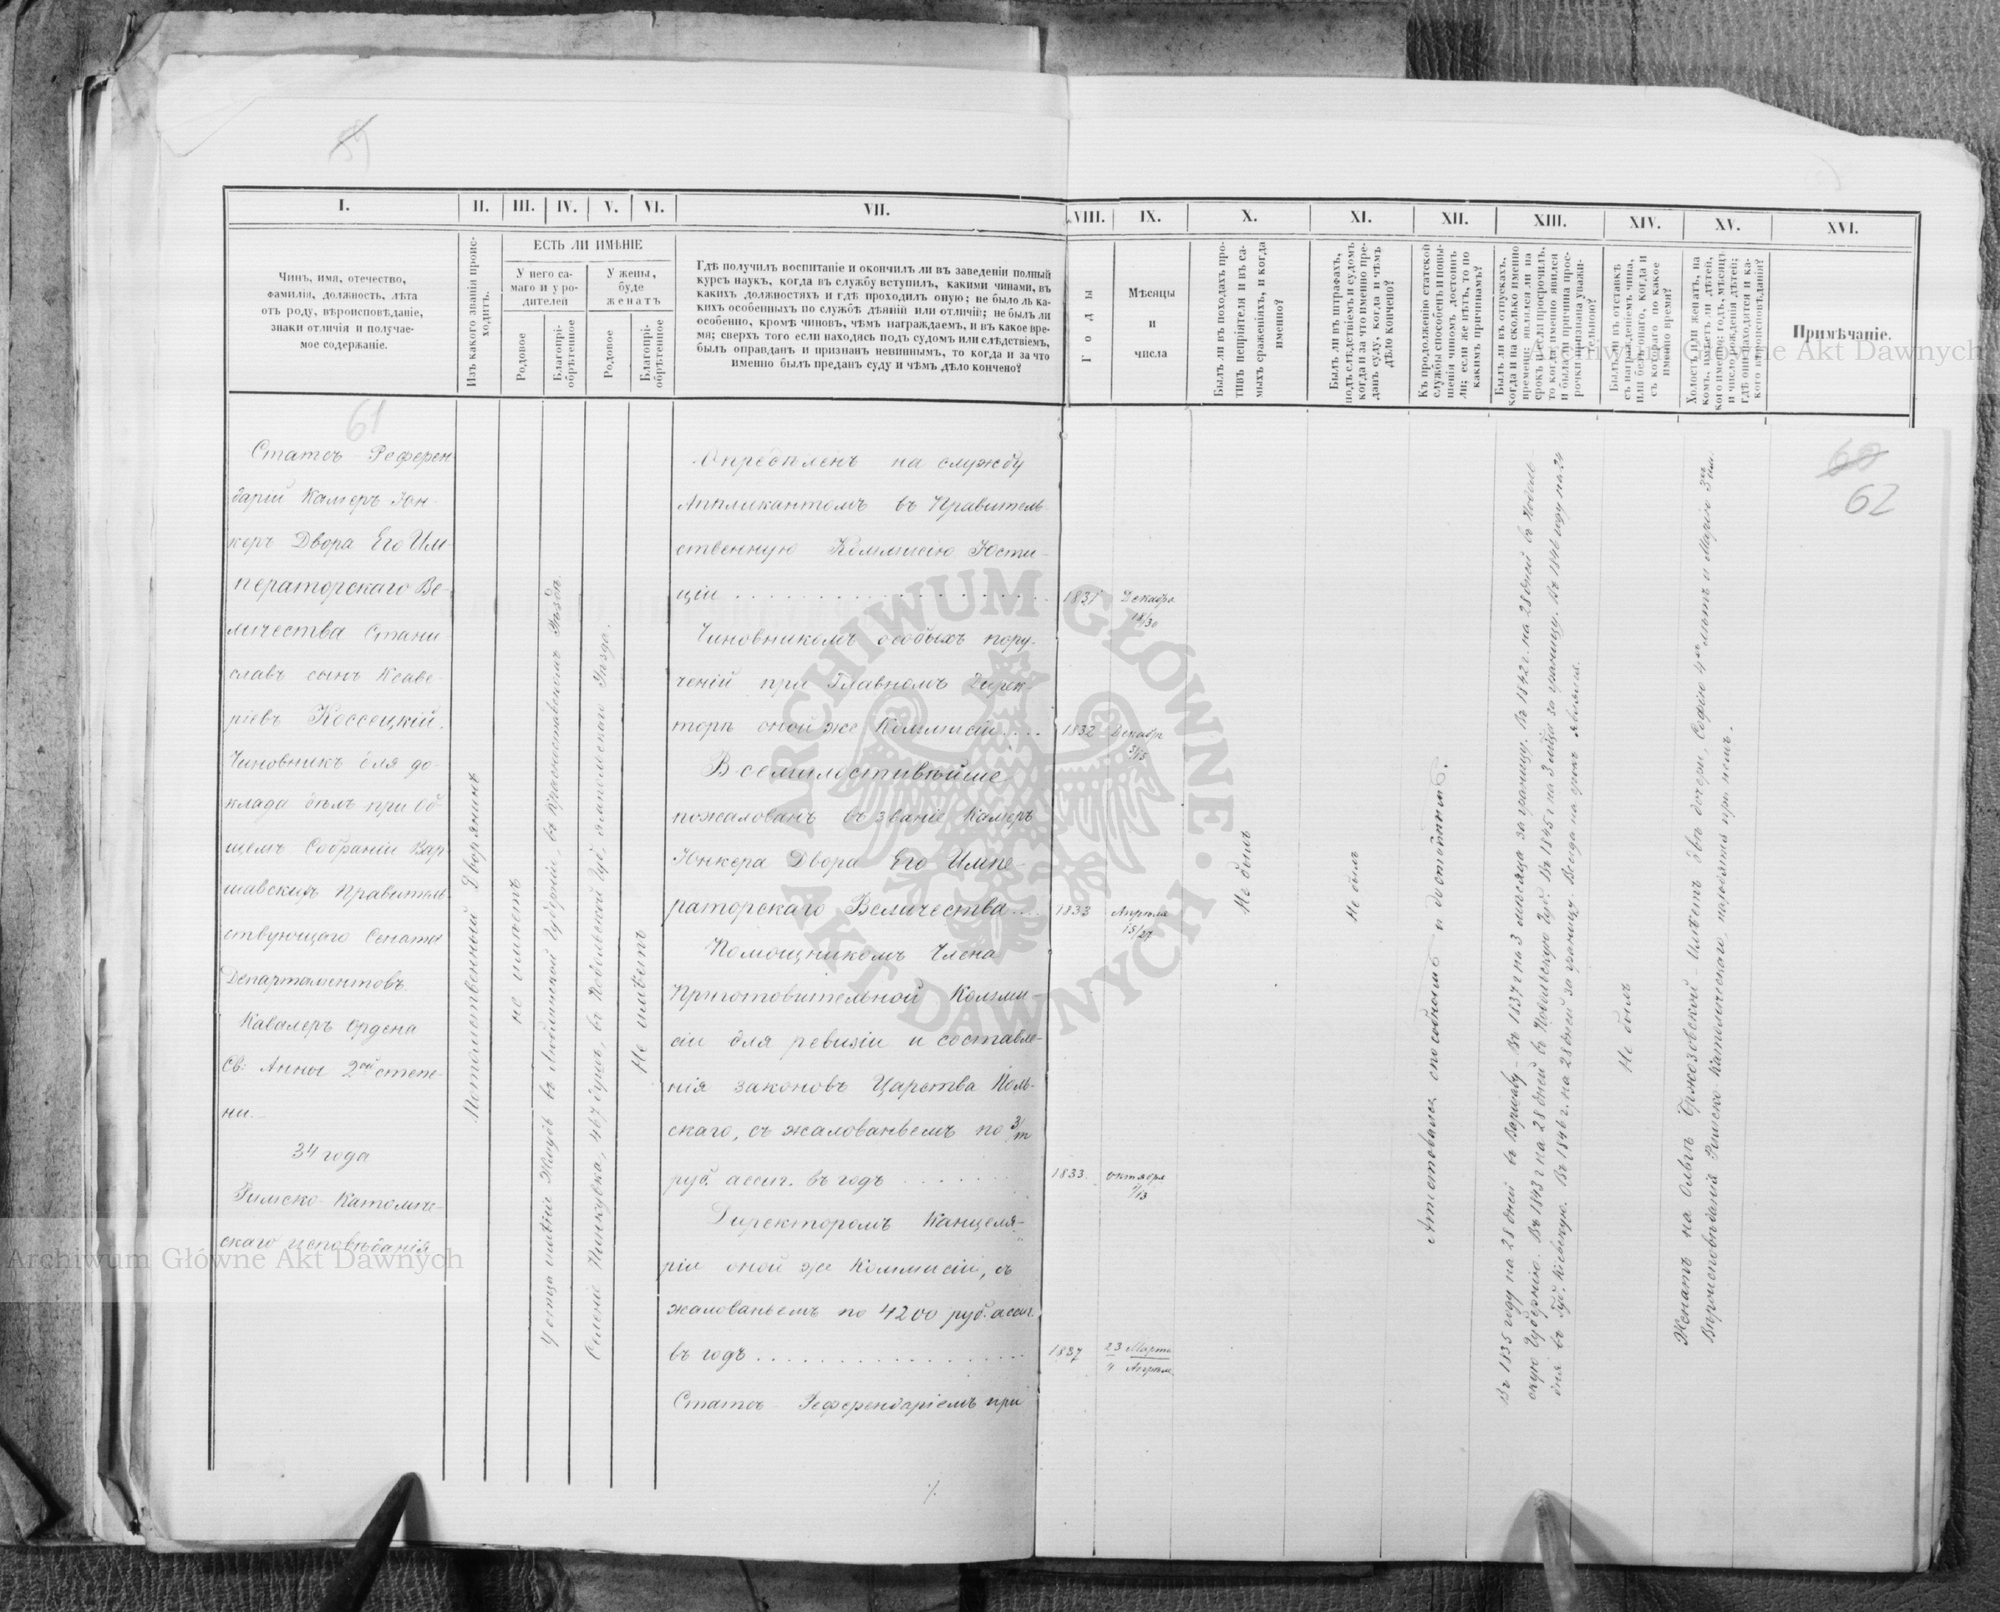 59
I.
II.
III.
IV.
V.
VI.
VII.
VIII.
IX.
X.
XI.
XII.
XIII.
XIV.
XV.
XVI.
Чинъ, имя, отечество,
фамилія, должность, лѣта
отъ роду, вѣроисповѣданіе,
знаки отличія и получае-
мое содержаніе.
Изъ какого званія проис-
ходитъ.
ЕСТЬ ЛИ ИМѢНІЕ
У него са-
маго и у ро-
дителей
У жены,
буде
женатъ
Родовое
Благопрі-
обрѣтенное
Родовое
Благопрі-
обрѣтенное
Гдѣ получилъ воспитаніе и окончилъ ли въ заведеніи полный
курсъ наукъ, когда въ службу вступилъ, какими чинами, въ
какихъ должностяхъ и гдѣ проходилъ оную; не было ль ка-
кихъ особенныхъ по службѣ дѣяній или отличій; не былъ ли
особенно, кромѣ чиновъ, чѣмъ награждаемъ, и въ какое вре-
мя; сверхъ того если находясь подъ судомъ или слѣдствіемъ,
былъ оправданъ и признанъ невиннымъ, то когда и за что
именно былъ преданъ суду и чѣмъ дѣло кончено?
Годы
Мѣсяцы
и
числа
Былъ ли въ походахъ про-
тивъ непріятеля и въ са-
мыхъ сраженіяхъ, и когда
именно?
Былъ ли въ штрафахъ,
подъ слѣдствіемъ и судомъ,
когда и за что именно пре-
данъ суду, когда и чѣмъ
дѣло кончено?
Къ продолженію статской
службы способенъ и повы-
шенія чиномъ достоинъ
ли; если же нѣтъ, то по
какимъ причинамъ?
Былъ ли въ отпускахъ,
когда и на сколько именно
времени; явился ли на
срокъ и если просрочилъ,
то когда именно явился
и была ли причина прос-
рочки признана уважи-
тельною?
Былъ ли въ отставкѣ
съ награжденіемъ чина,
или безъ онаго, когда и
съ котораго по какое
именно время?
Холостъ или женатъ, на
комъ, имѣетъ ли дѣтей,
кого именно; годъ, мѣсяцъ
и число рожденія дѣтей;
гдѣ они находятся и ка-
кого вѣроисповѣданія?
Примѣчаніе.
61
Статсъ Референ
дарій Камеръ Юн-
керъ Двора Его Им-
ператорскаго Ве-
личества Стани-
славъ сынъ Ксаве-
ріевъ Коссецкій.
Чиновникъ для до-
клада дѣлъ при Об-
щемъ Собраніи Вар-
шавскихъ Правитель-
ствующаго Сената
Департаментовъ.
Кавалеръ Ордена
Св: Анны 2ой степе-
ни.
34 года
Римско-Католиче-
скаго исповѣданія
Потомственный Дворянинъ
не имѣетъ
У отца имѣніе въ Люблинской Губерніи, въ Красноставскомъ Уѣздѣ.
Селеніе 467 душъ, въ Подольской Губ., Уѣзда.
Не имѣетъ
Опредѣленъ на службу
Аппликантомъ въ Правитель-
ственную Коммисію Юсти-
ціи
1831 Декабря 18/30
Чиновникомъ особыхъ пору-
ченій при Главномъ Дирек-
торѣ оной же Коммисіи....
1832 Декабр 3/15
Всемилостивѣйше
пожалованъ въ званіе Камеръ
Юнкера Двора Его Импе-
раторскаго Величества...
1833 Апрѣля 15/27
Помощникомъ Члена
Приготовительной Комми-
сіи для ревизіи и составле-
нія законовъ Царства Поль-
скаго, съ жалованьемъ по 3/m
руб. ассиг. въ годъ
1833. Октября 1/13
Директоромъ Канцеля-
ріи оной же Коммисіи, съ
жалованьемъ по 4200 руб. ассиг.
въ годъ
1837 23 Марта
4 Апрѣля
Статсъ-Референдаріемъ при
Не былъ
Не былъ
Аттестовался способнымъ и достойнымъ.
Въ 1835 году на 28 дней въ Варшаву. Въ 1837 г. на 3 мѣсяца за границу. Въ 1842 г. на 28 дней въ Подоль-
скую Губернію. Въ 1843 г. на 28 дней въ Подольскую Губ. Въ 1845 г. на 3 мѣца за границу. Въ 1846 году на 20
дня въ Губ. Кіевскую. Въ 1846 г. на 28 дней за границу. Всегда на срокъ являлся.
Не былъ
Женатъ на Ольгѣ Бржозовской. Имѣетъ двѣ дочери, Софію 4хъ лѣтъ и Марію 3хъ лѣт.
Вѣроисповѣданія Римско-Католическаго, находятся при немъ.
60
62
ARCHIWUM GŁÓWNE AKT DAWNYCH
Archiwum Główne Akt Dawnych
Archiwum Główne Akt Dawnych